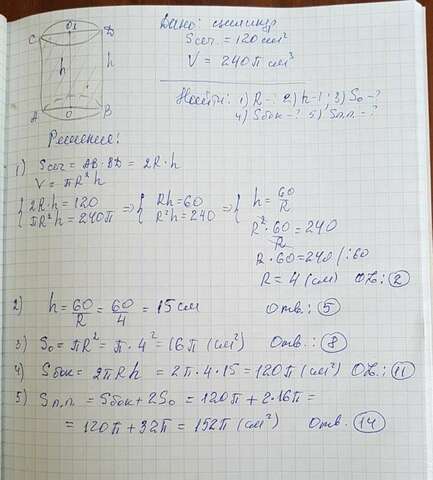 C O₁ D
h h
A O B
Дано: цилиндр
Sсеч. = 120 см²
V = 240π см³
Найти: 1) R - ? 2) h - ? 3) S₀ - ?
4) Sбок - ? 5) Sп.п. - ?
Решение:
1) Sсеч = AB · BD = 2R · h
V = πR²h
{ 2R·h = 120 πR²h = 240π ⇒ { Rh = 60 R²h = 240 ⇒ { h = 60/R
R² · 60/R = 240
R · 60 = 240 /:60
R = 4 (см) От.: 2
2) h = 60/R = 60/4 = 15 см Отв.: 5
3) S₀ = πR² = π · 4² = 16π (см²) Отв.: 8
4) Sбок = 2πRh = 2π · 4 · 15 = 120π (см²) От.: 11
5) Sп.п. = Sбок + 2S₀ = 120π + 2·16π =
= 120π + 32π = 152π (см²) Отв. 14